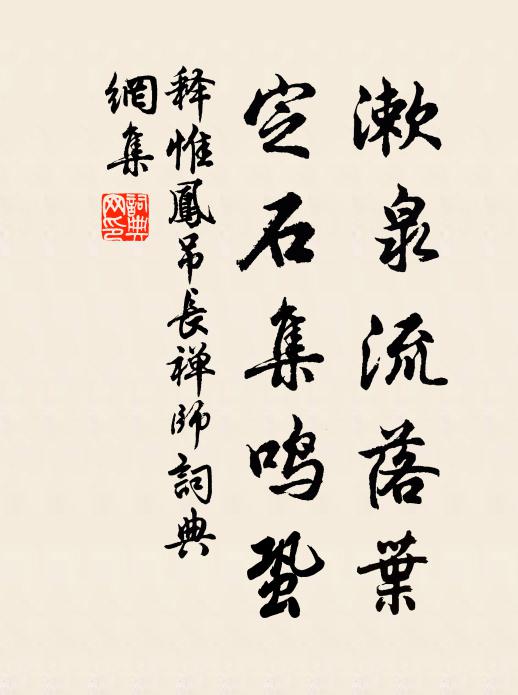 漱泉流落葉
定石集鸣蛩
释惟鳳吊長禅師詞典
網集
詞典网印